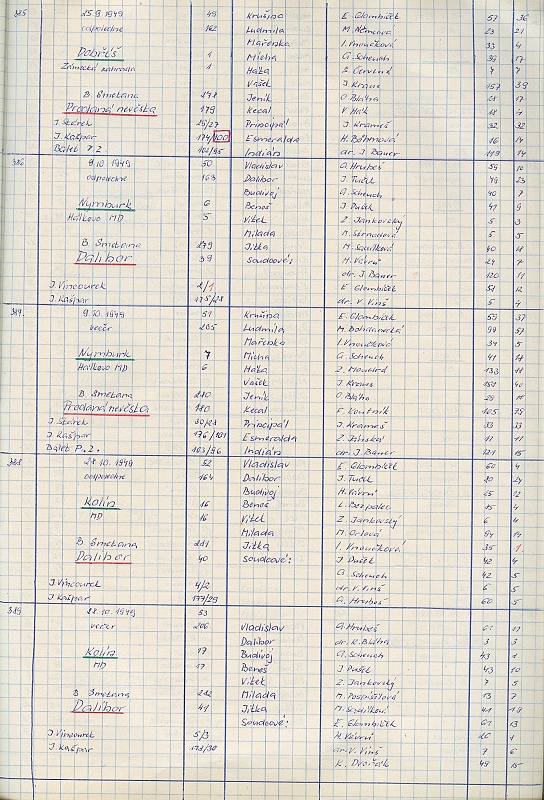 385 25.9 1949 49 Krušina E. Glombíček 57 36
odpoledne 162 Ludmila M. Němcová 23 21
Mařenka I. Vnoučková 33 4
Dobříš 1 Micha G. Scheuch 39 17
Zámecká zahrada 1 Háta
Vašek J. Kraus 157 39
B. Smetana 278 Jeník O. Bláha 28 17
Prodaná nevěsta 179 Kecal V. Hák 18 4
J. Stárek 29/27 Principál J. Krameš 32 32
J. Kašpar 174/100 Esmeralda H. Böhmová 16 14
Balet P.Z. 162/95 Indián dr. J. Bauer 119 14
386 9.10 1949 50 Vladislav G. Hrubeš 59 10
odpoledne 163 Dalibor J. Tuček 79 23
Budivoj G. Scheuch 40 7
Nymburk 6 Beneš J. Dušek 41 9
Hálkovo MD 5 Vítek Z. Jankovský 5 3
Milada M. Strnadová 5 5
B. Smetana 279 Jitka M. Sedílková 40 18
Dalibor 39 Soudcové: H. Vávrů 24 7
dr. J. Bauer 120 11
J. Vincourek 2/1 E. Glombíček 51 12
J. Kašpar 175/28 dr. V. Vinš 5 4
387 9.10 1949 51 Krušina E. Glombíček 59 37
večer 205 Ludmila M. Bohdanecká 99 57
Mařenka I. Vnoučková 34 5
Nymburk 7 Micha G. Scheuch 41 17
Hálkovo MD 6 Háta Z. Mandrd 133 11
Vašek J. Kraus 158 40
B. Smetana 280 Jeník O. Bláha 29 11
Prodaná nevěsta 180 Kecal F. Koutník 105 75
J. Stárek 30/28 Principál J. Krameš 33 33
J. Kašpar 176/101 Esmeralda Z. Jónská 11 11
Balet P.Z. 163/96 Indián dr. J. Bauer 121 15
388 28.10 1949 52 Vladislav E. Glombíček 60 4
odpoledne 164 Dalibor J. Tuček 80 24
Budivoj H. Vávrů 25 12
Kolín 16 Beneš L. Bezpalec 15 4
MD 16 Vítek Z. Jankovský 6 4
Milada M. Orlová 94 17
B. Smetana 281 Jitka I. Vnoučková 35 1
Dalibor 40 Soudcové: J. Dušek 42 4
G. Scheuch 42 5
J. Vincourek 4/2 dr. V. Vinš 6 5
J. Kašpar 177/29 G. Hrubeš 60 5
389 28.10 1949 53
večer 206 Vladislav G. Hrubeš 61 11
Dalibor dr. K. Bláha 3 3
Kolín 17 Budivoj G. Scheuch 43 1
MD 17 Beneš J. Dušek 43 10
Vítek Z. Jankovský 7 5
B. Smetana 282 Milada M. Pospíšilová 13 7
Dalibor 41 Jitka M. Sedílková 41 19
Soudcové: E. Glombíček 61 13
J. Vincourek 5/3 H. Vávrů 26 1
J. Kašpar 178/30 dr. V. Vinš 7 6
K. Dvořák 49 15